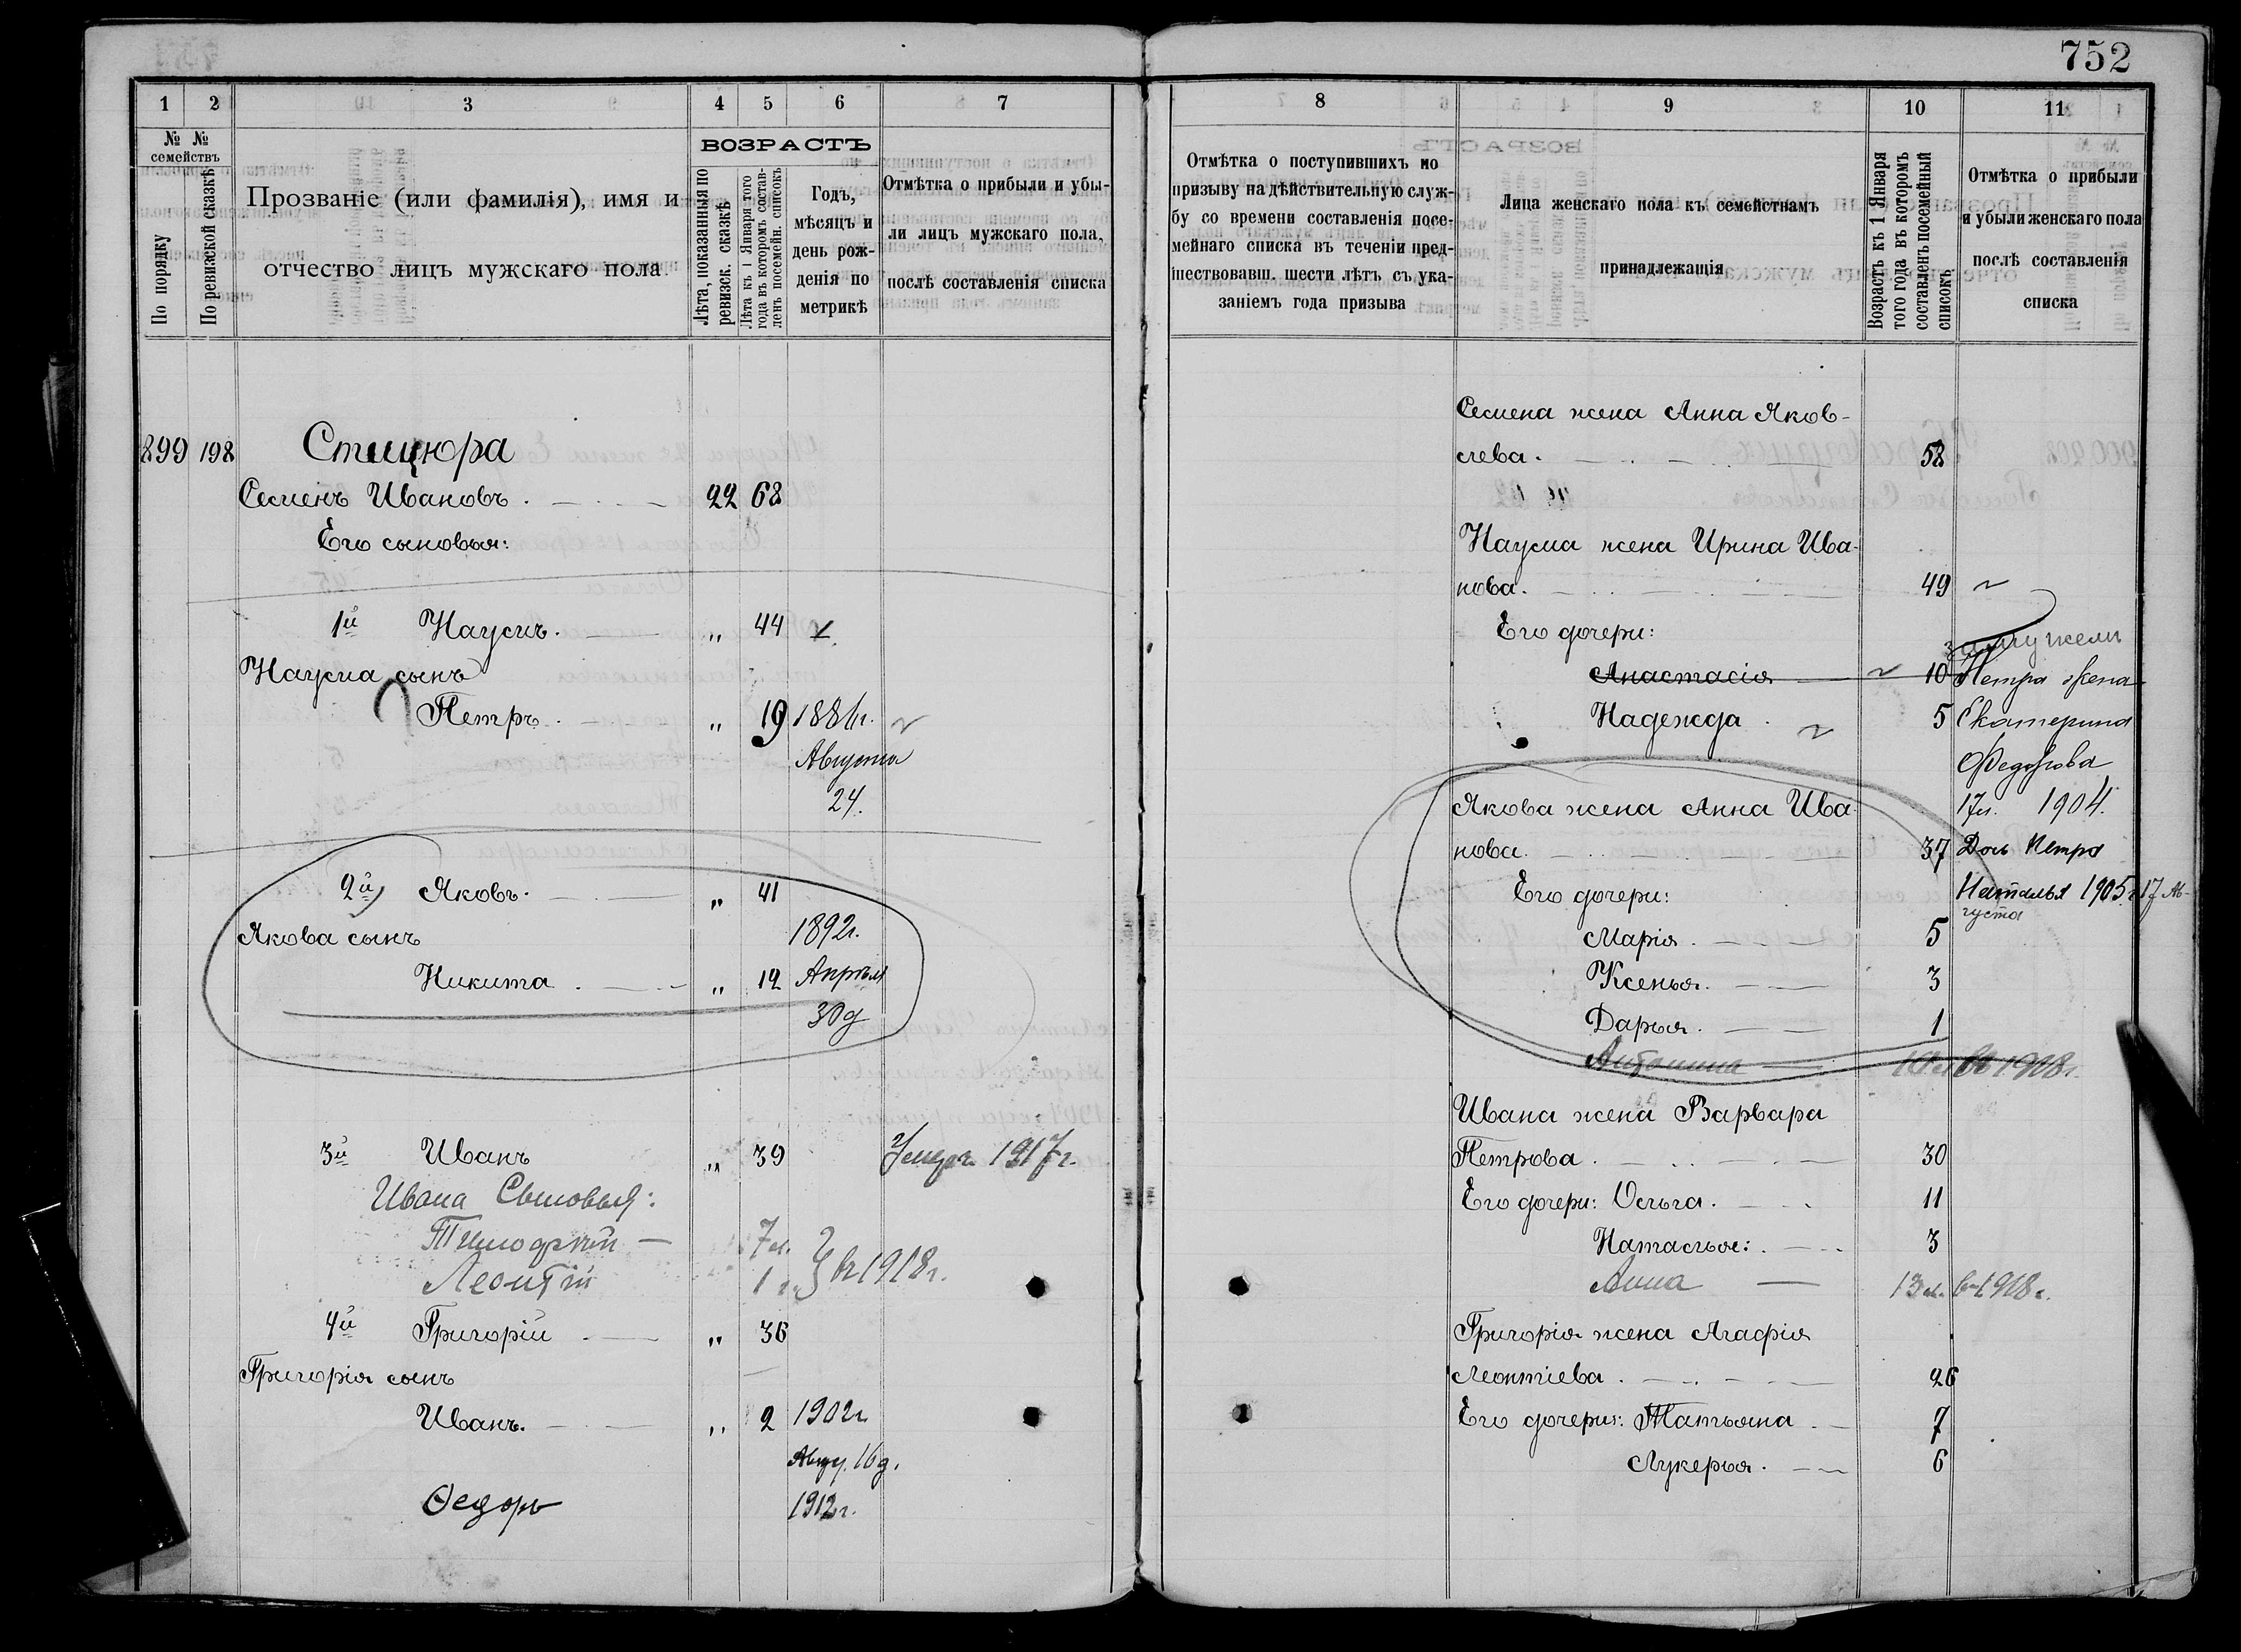 752
1
2
3
4
5
6
7
№ №
семействъ
По порядку
По ревизской сказкѣ
Прозваніе (или фамилія), имя и
отчество лицъ мужскаго пола.
ВОЗРАСТЪ
Лѣта, показанныя по
ревизск. сказкѣ
Лѣта къ 1 Января того
года въ которомъ состав-
ленъ посемейн. списокъ
Годъ,
мѣсяцъ и
день рож-
денія по
метрикѣ
Отмѣтка о прибыли и убы-
ли лицъ мужскаго пола,
послѣ составленія списка
899 198 Стицюра
Семенъ Ивановъ. 22 68
Его сыновья:
1й Наумъ. „ 44
Наума сынъ
Петръ. „ 19 1884г.
Августа
24.
2й Яковъ. „ 41
Якова сынъ 1892г.
Никита. „ 12 Апрѣля
30д
3й Иванъ „ 39 Умеръ 1917г.
Ивана Сыновья:
Тимофей 7л.
Леонтій 1г. въ 1918г.
4й Григорій „ 36
Григорія сынъ
Иванъ. „ 2 1902г.
Авгу. 16д.
Ѳедоръ 1912г.
8
9
10
11
Отмѣтка о поступившихъ по
призыву на дѣйствительную служ-
бу со времени составленія посе-
мейнаго списка въ теченіи пред-
шествовавш. шести лѣтъ съ ука-
заніемъ года призыва
Лица женскаго пола къ семействамъ
принадлежащія
Возрастъ къ 1 Января
того года въ которомъ
составленъ посемейный
списокъ
Отмѣтка о прибыли
и убыли женскаго пола
послѣ составленія
списка
Семена жена Анна Яков-
лева. 58
Наума жена Ирина Ива-
нова. 49
Его дочери: замужемъ
Анастасія 10 Петра жена
Надежда. 5 Екатерина
Федорова
Якова жена Анна Ива- 17л. 1904.
нова. 37 Дочь Петра
Его дочери: Наталья 1905г. 17 Ав-
густа
Марія. 5
Ксенья. 3
Дарья. 1
Антонина 10л въ 1918г.
Ивана жена Варвара
Петрова. 30
Его дочери: Ольга. 11
Наталья: 3
Анна 13л. въ 1918г.
Григорія жена Агафія
Леонтіева. 26
Его дочери: Татьяна. 7
Лукерья. 6